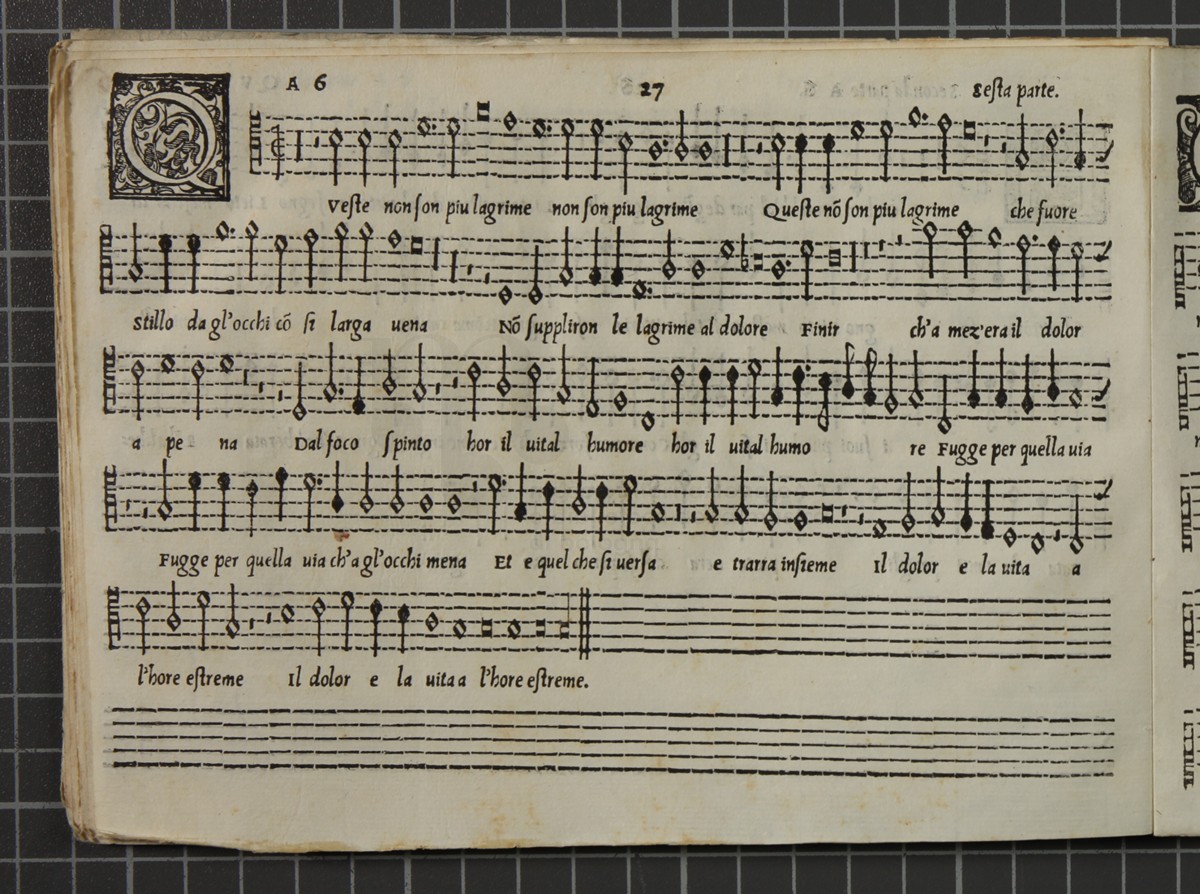 A 6 27 Sesta parte.
Q Veste non son piu lagrime non son piu lagrime Queste nõ son piu lagrime che fuore
Stillo da gl'occhi cõ si larga uena Nõ suppliron le lagrime al dolore Finir ch'a mez'era il dolor
a pe - na Dal foco spinto hor il uital humore hor il uital humo re Fugge per quella uia
Fugge per quella uia ch'a gl'occhi mena Et e quel che si uersa e trarra insieme Il dolor e la uita a
l'hore estreme Il dolor e la uita a l'hore estreme.